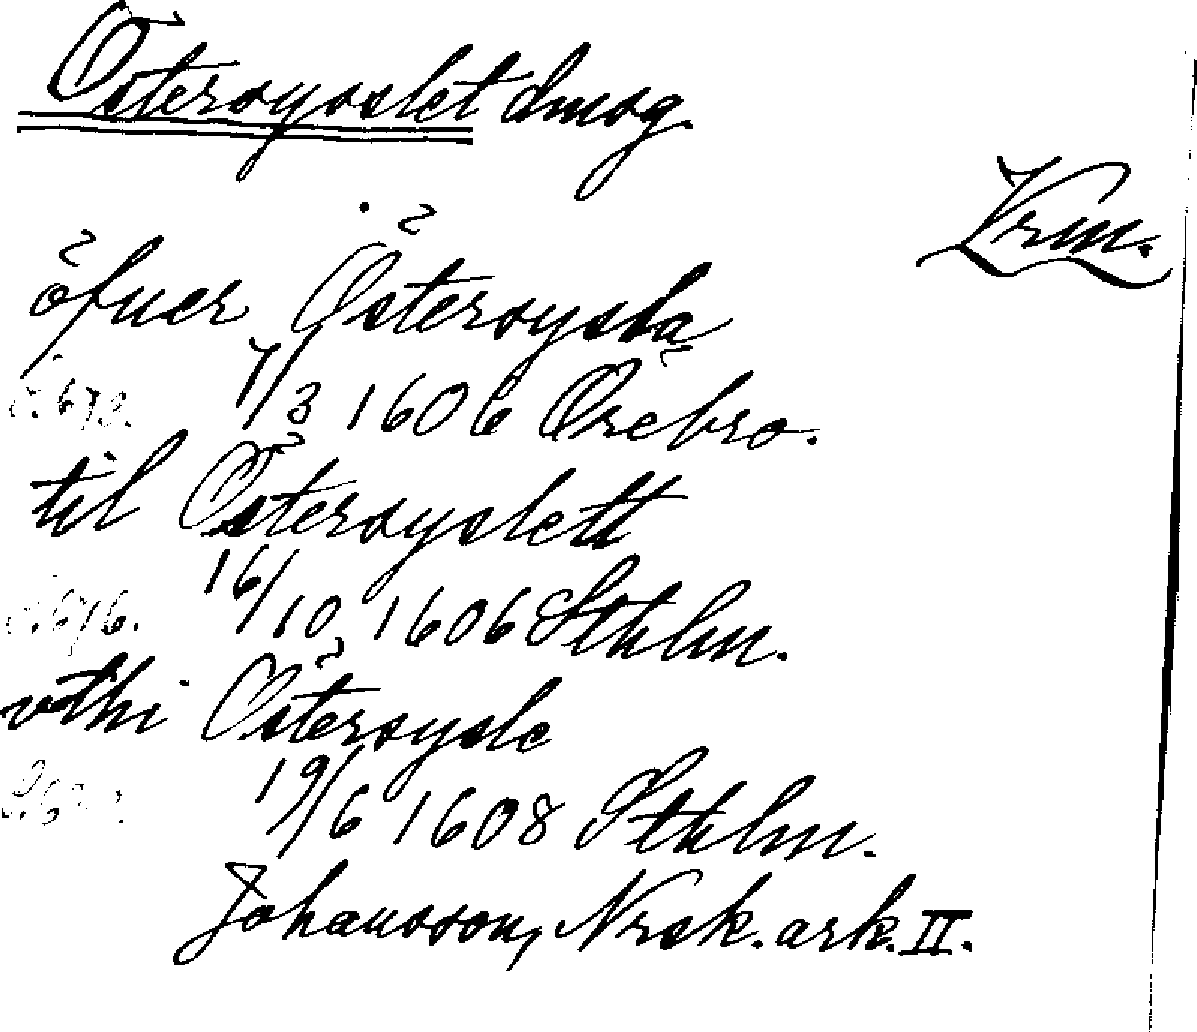 Östersysslet dmog.
Vrm.
öfuer Östersysla
7/3 1606 Örebro.
til Östersyslett
16/10 1606 Sthlm.
vthi Östersysle
19/6 1608 Sthlm.
Johansson, Nrsk. ark. II.